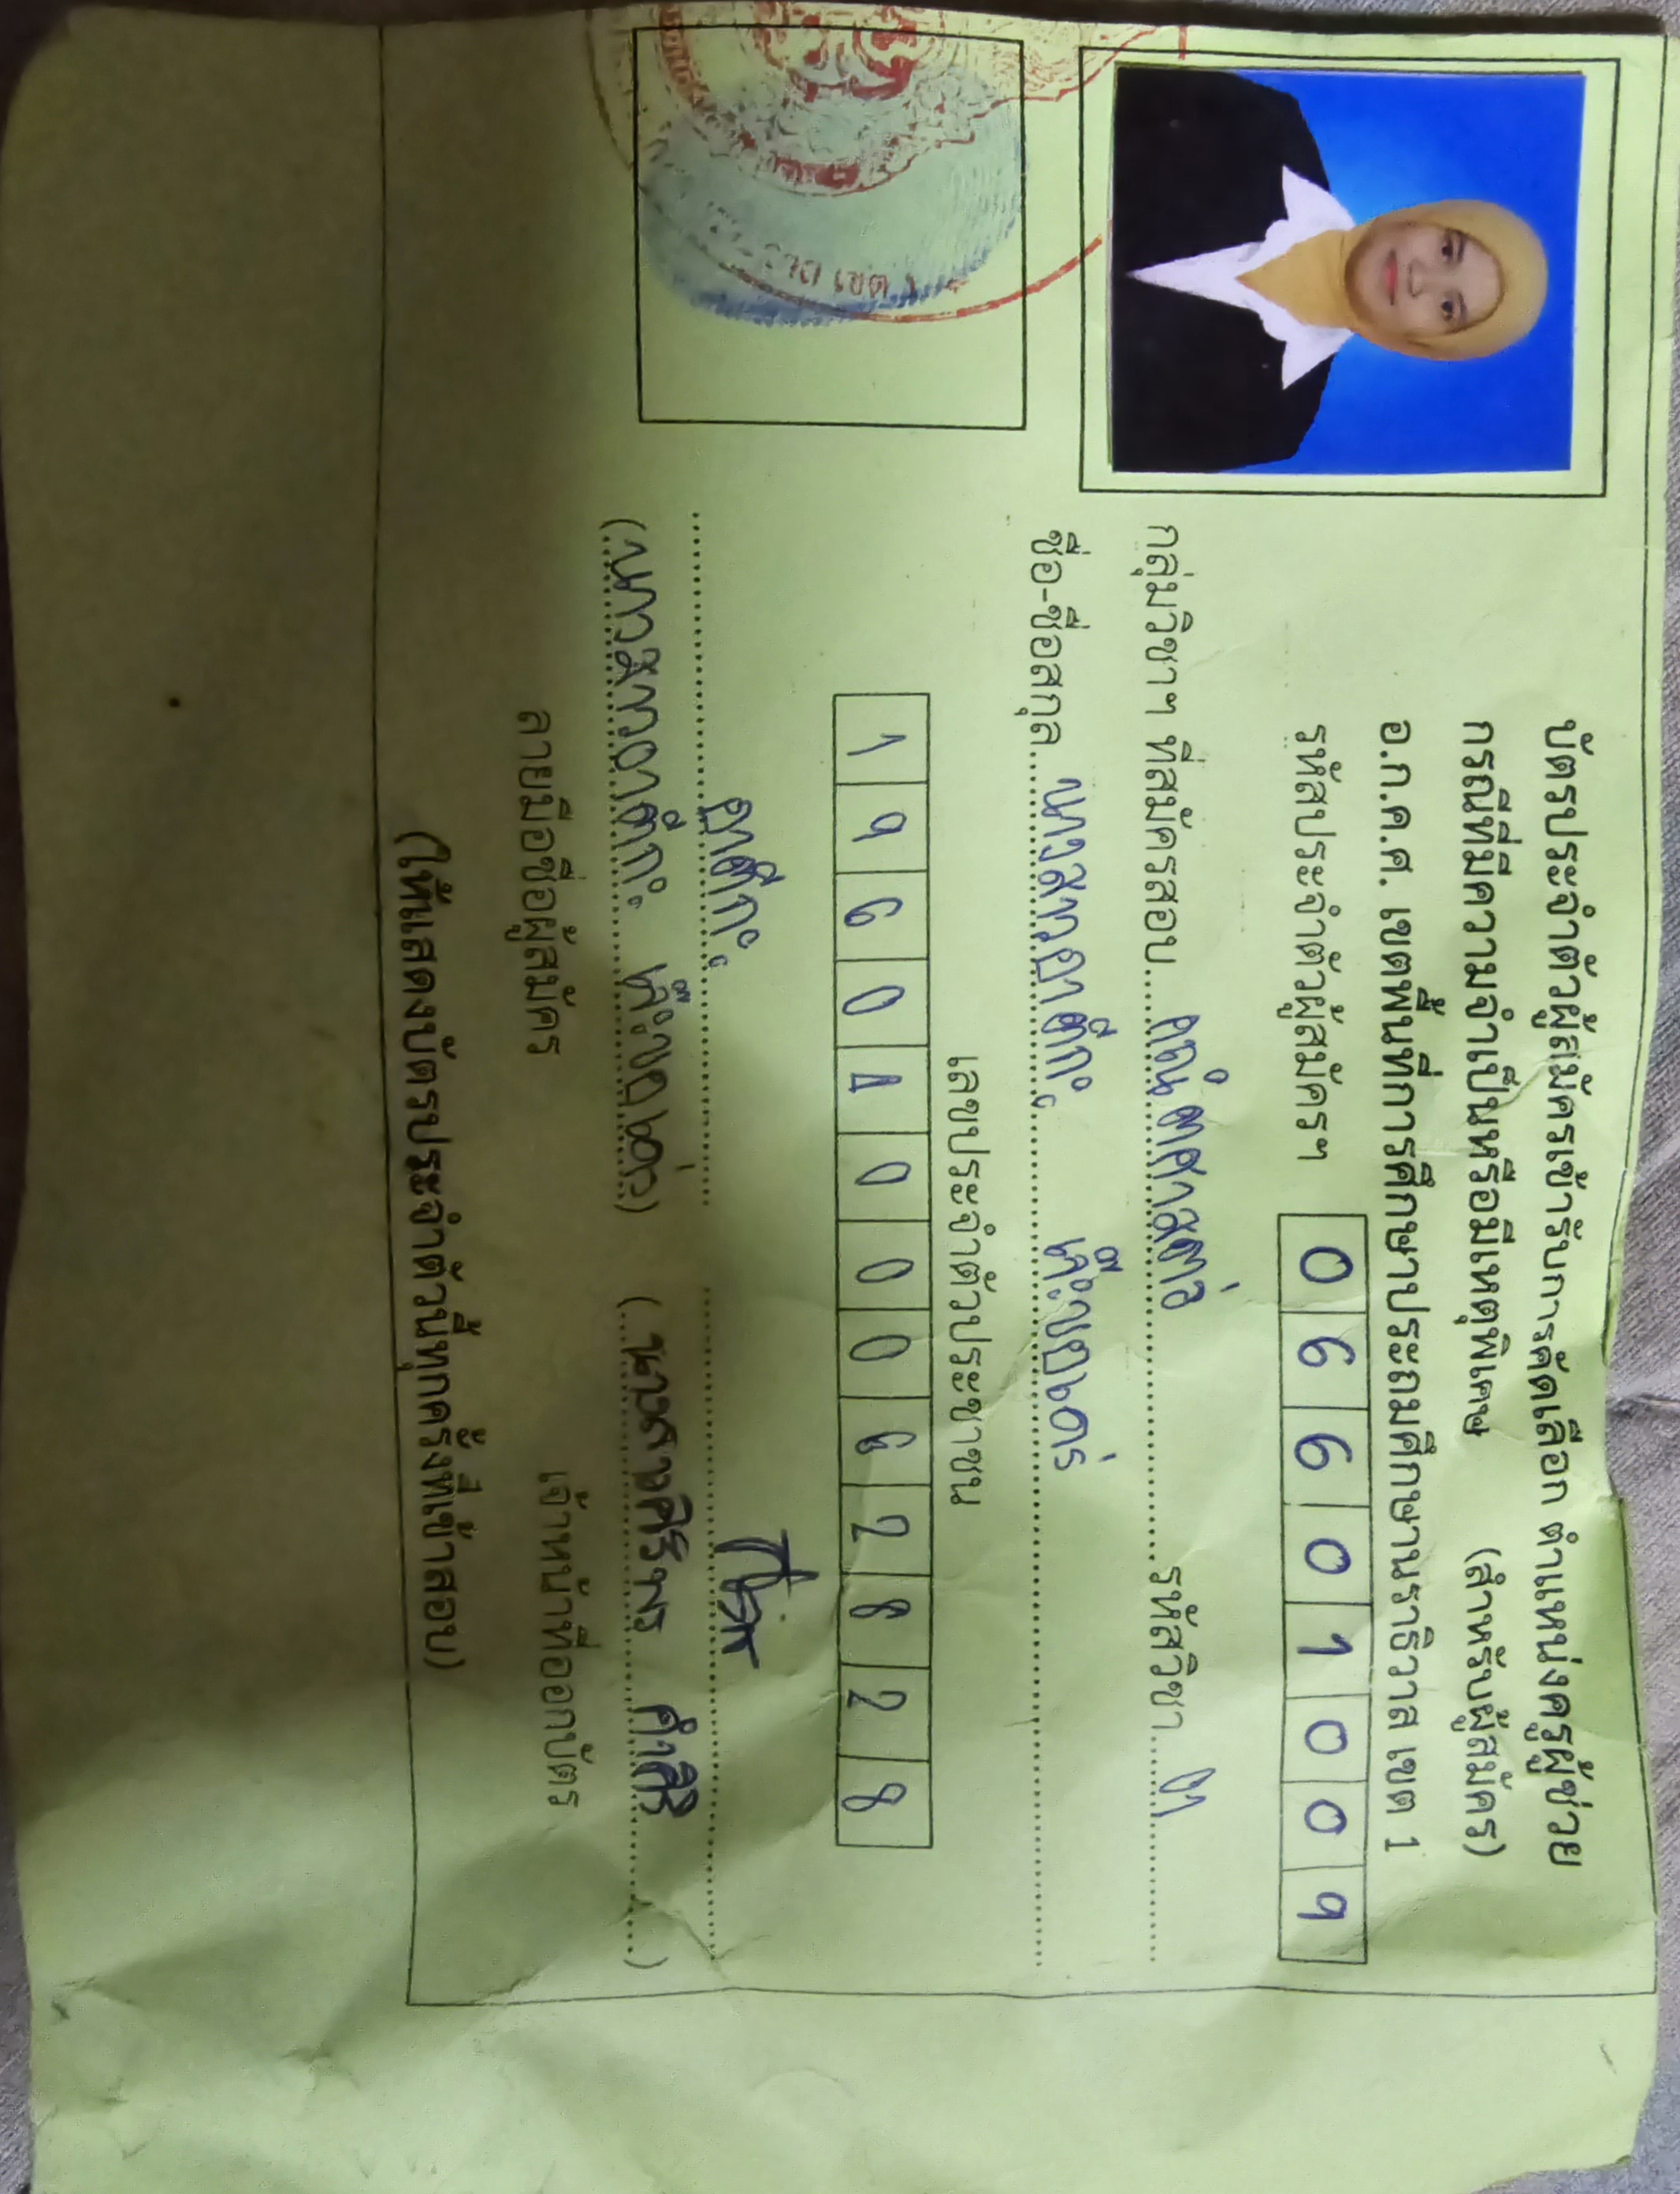 บัตรประจำตัวผู้สมัครเข้ารับการคัดเลือก ตำแหน่งครูผู้ช่วย
กรณีที่มีความจำเป็นหรือมีเหตุพิเศษ (สำหรับผู้สมัคร)
อ.ก.ค.ศ. เขตพื้นที่การศึกษาประถมศึกษานราธิวาส เขต 1
รหัสประจำตัวผู้สมัครฯ 0 6 6 0 1 0 0 9
กลุ่มวิชาฯ ที่สมัครสอบ คณิตศาสตร์ รหัสวิชา
ชื่อ-ชื่อสกุล นางสาว
เลขประจำตัวประชาชน
1 9 6 0 1 0 0 0 6 2 8 2 8
(นางสาว ) (นางสาวศิริพร คำศิริ)
ลายมือชื่อผู้สมัคร เจ้าหน้าที่ออกบัตร
(ให้แสดงบัตรประจำตัวนี้ทุกครั้งที่เข้าสอบ)